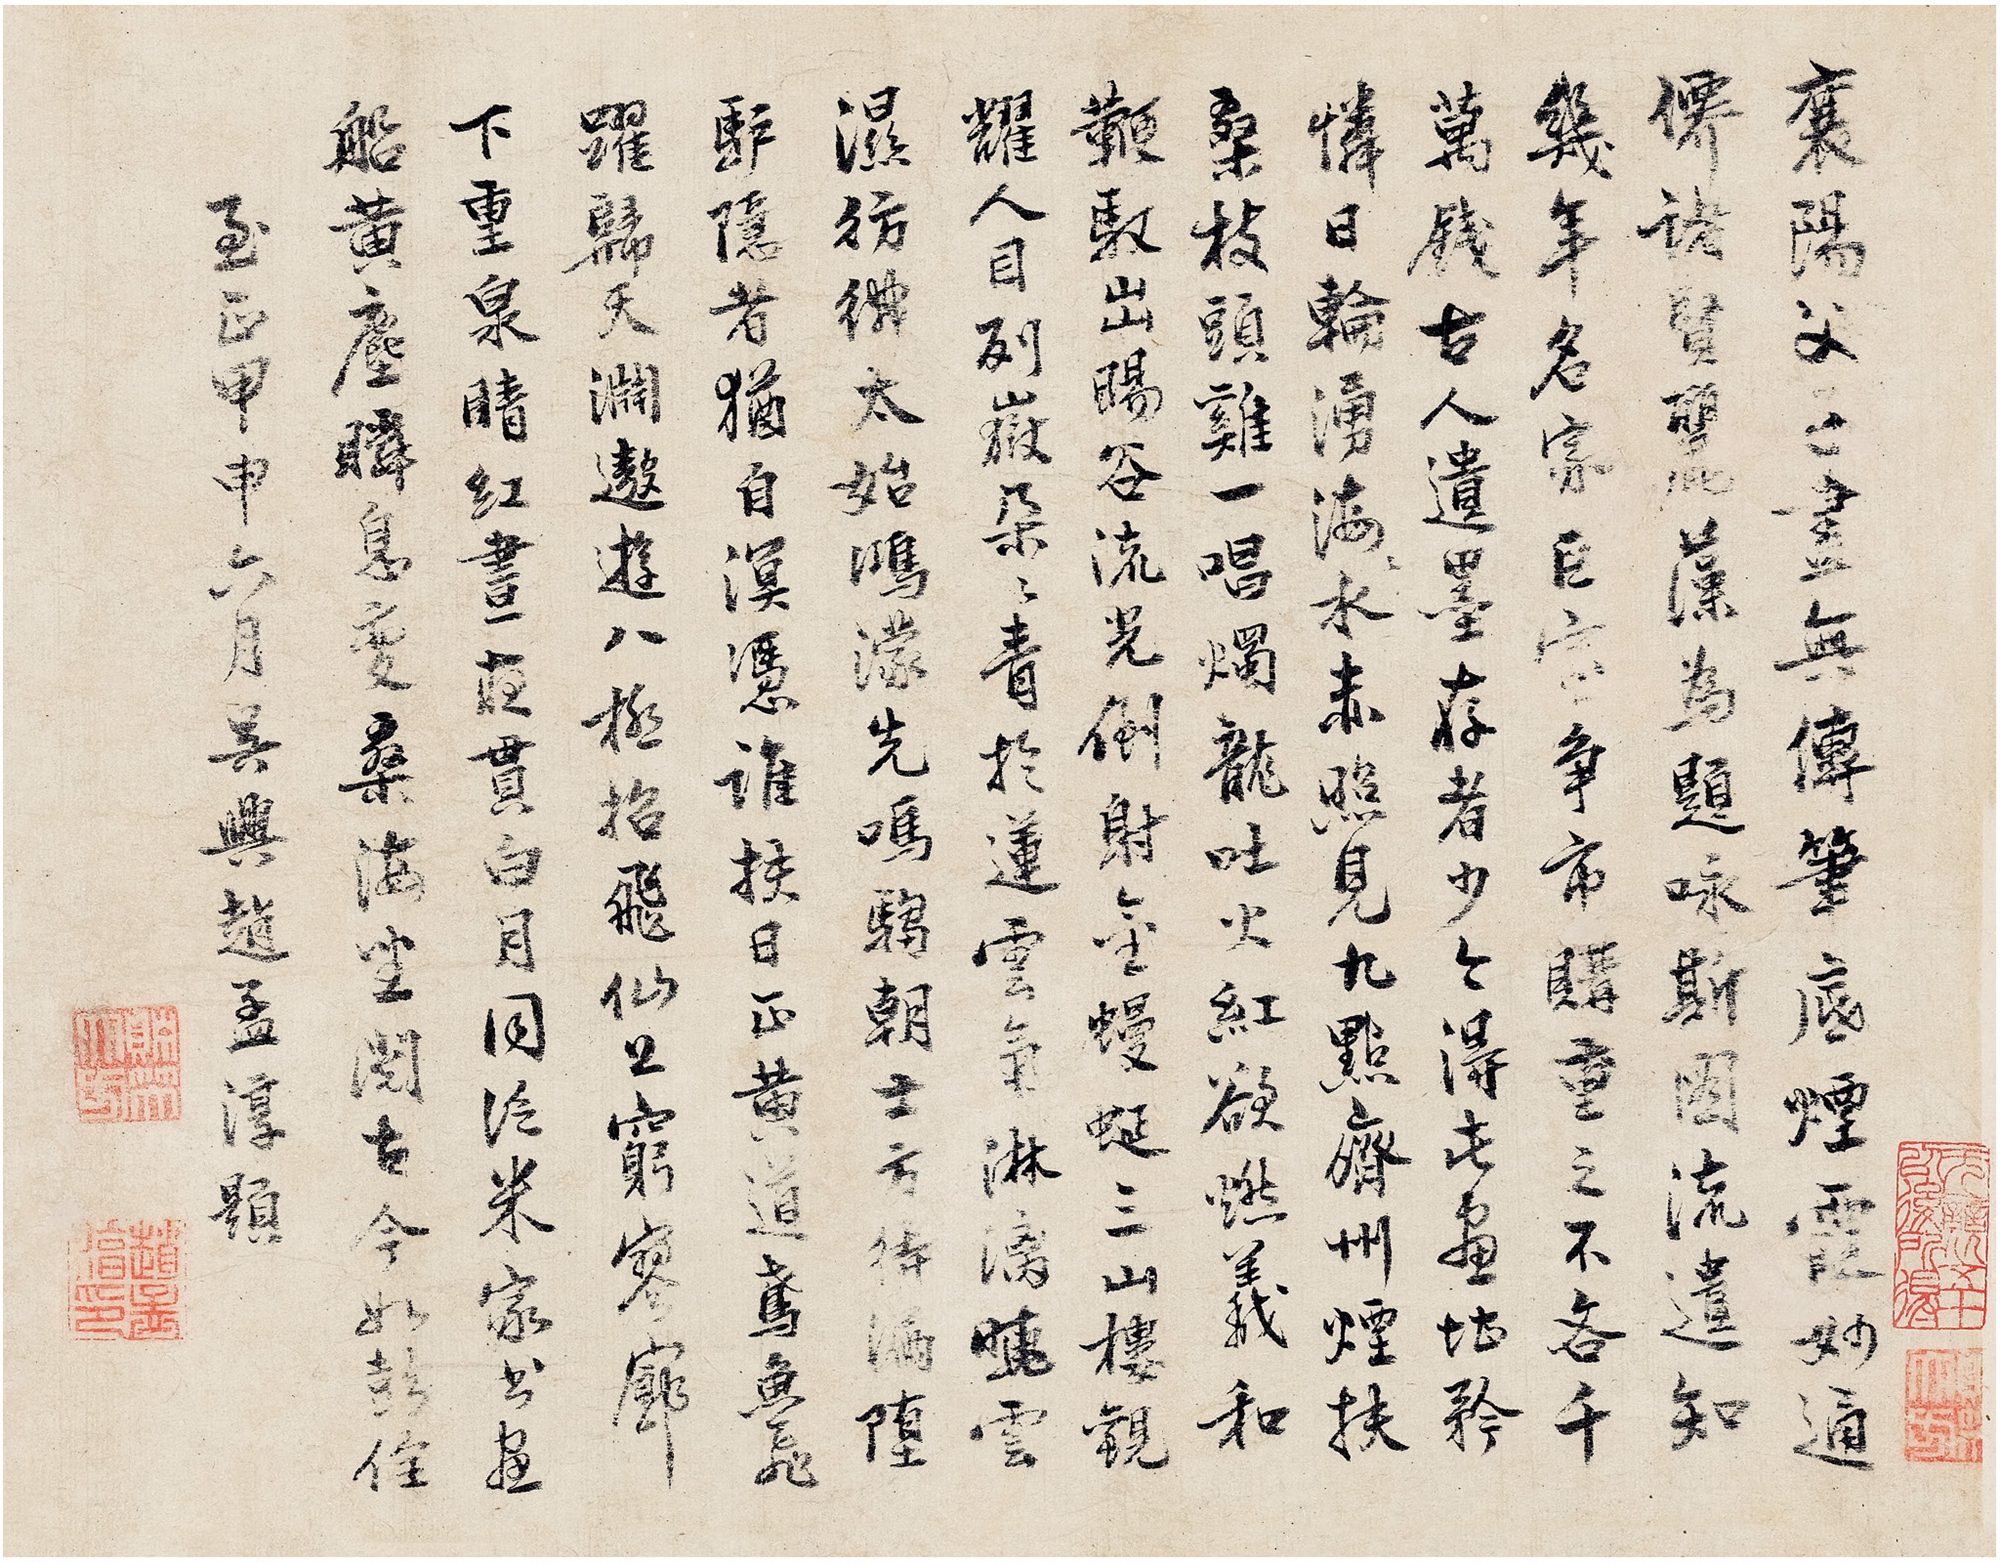 襄陽父子畫無傳筆底煙霞妙通
儒諸賢麗藻為題咏斯圖流遺知
幾年名家巨室爭市購重之不吝千
萬錢古人遺墨存者少今得此畫堪矜
憐日輪湧海海水赤照見九點齊州煙扶
桑枝頭雞一唱燭龍吐火紅欲燃羲和
鞭馭出暘谷流光倒射金蟃蜒三山樓觀
耀人目列嶽朵〻青於蓮雲氣淋漓曉雲
濕彷彿太始鴻濛先鳴騶朝士方待漏墮
驢隱者猶自漠憑誰扶日正黃道鳶魚飛
躍歸天淵遨遊八極招飛仙上窮寥廓
下重泉晴紅晝夜貫白月同泛米家書畫
船黃塵瞬息變桑海坐閱古今如彭佺
至正甲申六月吳興趙孟淳題